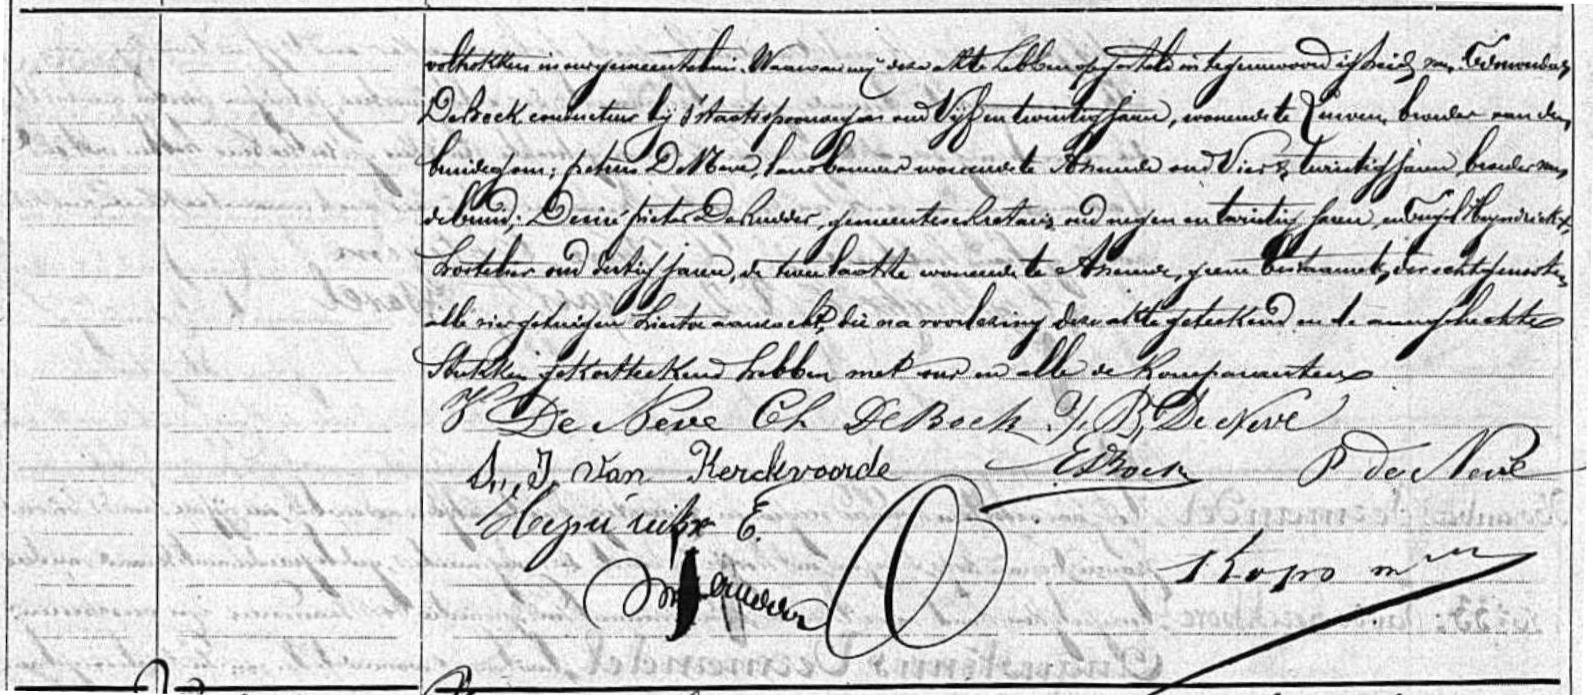 voltrokken in ons gemeentehuis. Waarvan wij deze akte hebben opgesteld in tegenwoordigheid van Edmondus
De Bock conducteur bij s'staatsspoorwegen oud vijf en twintig jaren, wonende te broeder van den
bruidegom; petrus De Neve, landbouwer wonende te Assenede oud Vier & twintig jaren broeder van
de bruid; Desiré pieter De Rudder, gemeentesekretaris, oud negen en twintig jaren, en Heyndrickx,
oud dertig jaren, de twee laatste wonende te Assenede, geene bestaanden der echtgenooten
alle vier getuigen hiertoe aanzocht, die na voorlezing deze akte geteekend en de aangehechte
stukken gekortteekend hebben met ons en alle de komparanten
De Neve Ch DeBock B. De Neve
J. Van Kerckvoorde EDBock P de Neve
E.